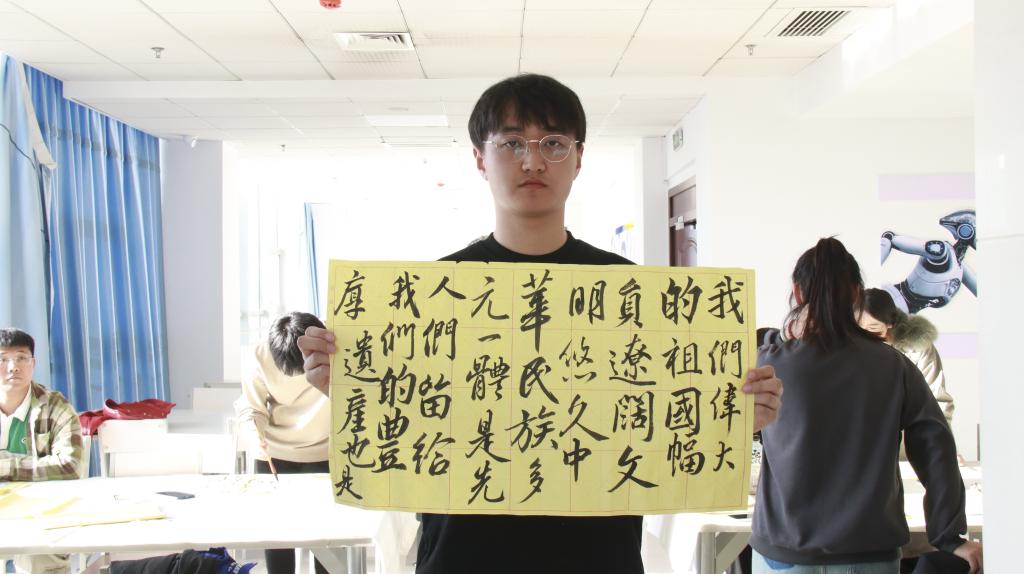 我們偉大
的祖國幅
員遼闊文
明悠久中
華民族多
元一體是先
人們留給
我們的豐
厚遺産也是